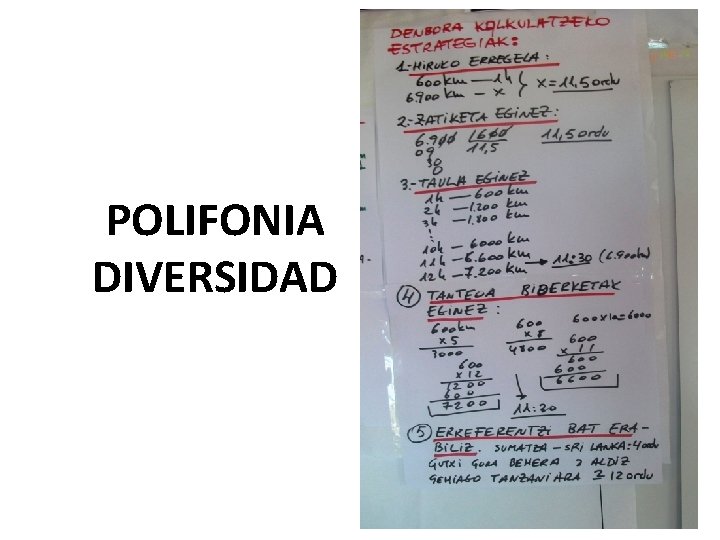 POLIFONIA
DIVERSIDAD
DENBORA KALKULATZEKO
ESTRATEGIAK:
1.-HIRUKO ERREGELA:
600km — 1h
6.900km — x } x = 11,5 ordu
2.- ZATIKETA EGINEZ:
6.900 | 600 11,5 ordu
09 11,5
30
0
3.- TAULA EGINEZ
1h — 600 km
2h — 1.200 km
3h — 1.800 km
10h — 6000 km
11h — 6.600 km → 11:30 (6.900km)
12h — 7.200 km
4 TANTEUA BIDERKETAK
EGINEZ:
600km 600 600x10=6000
x5 x8
3000 4800 600
x 11
600 600
x 12 600
1200 6600
600
7200 11:30
5 ERREFERENTZI BAT ERA-
BILIZ. SUMATZA — SRI LANKA = 4 ordu
GUTXI GORA BEHERA 3 ALDIZ
GEHIAGO TANZANIARA 12 ordu